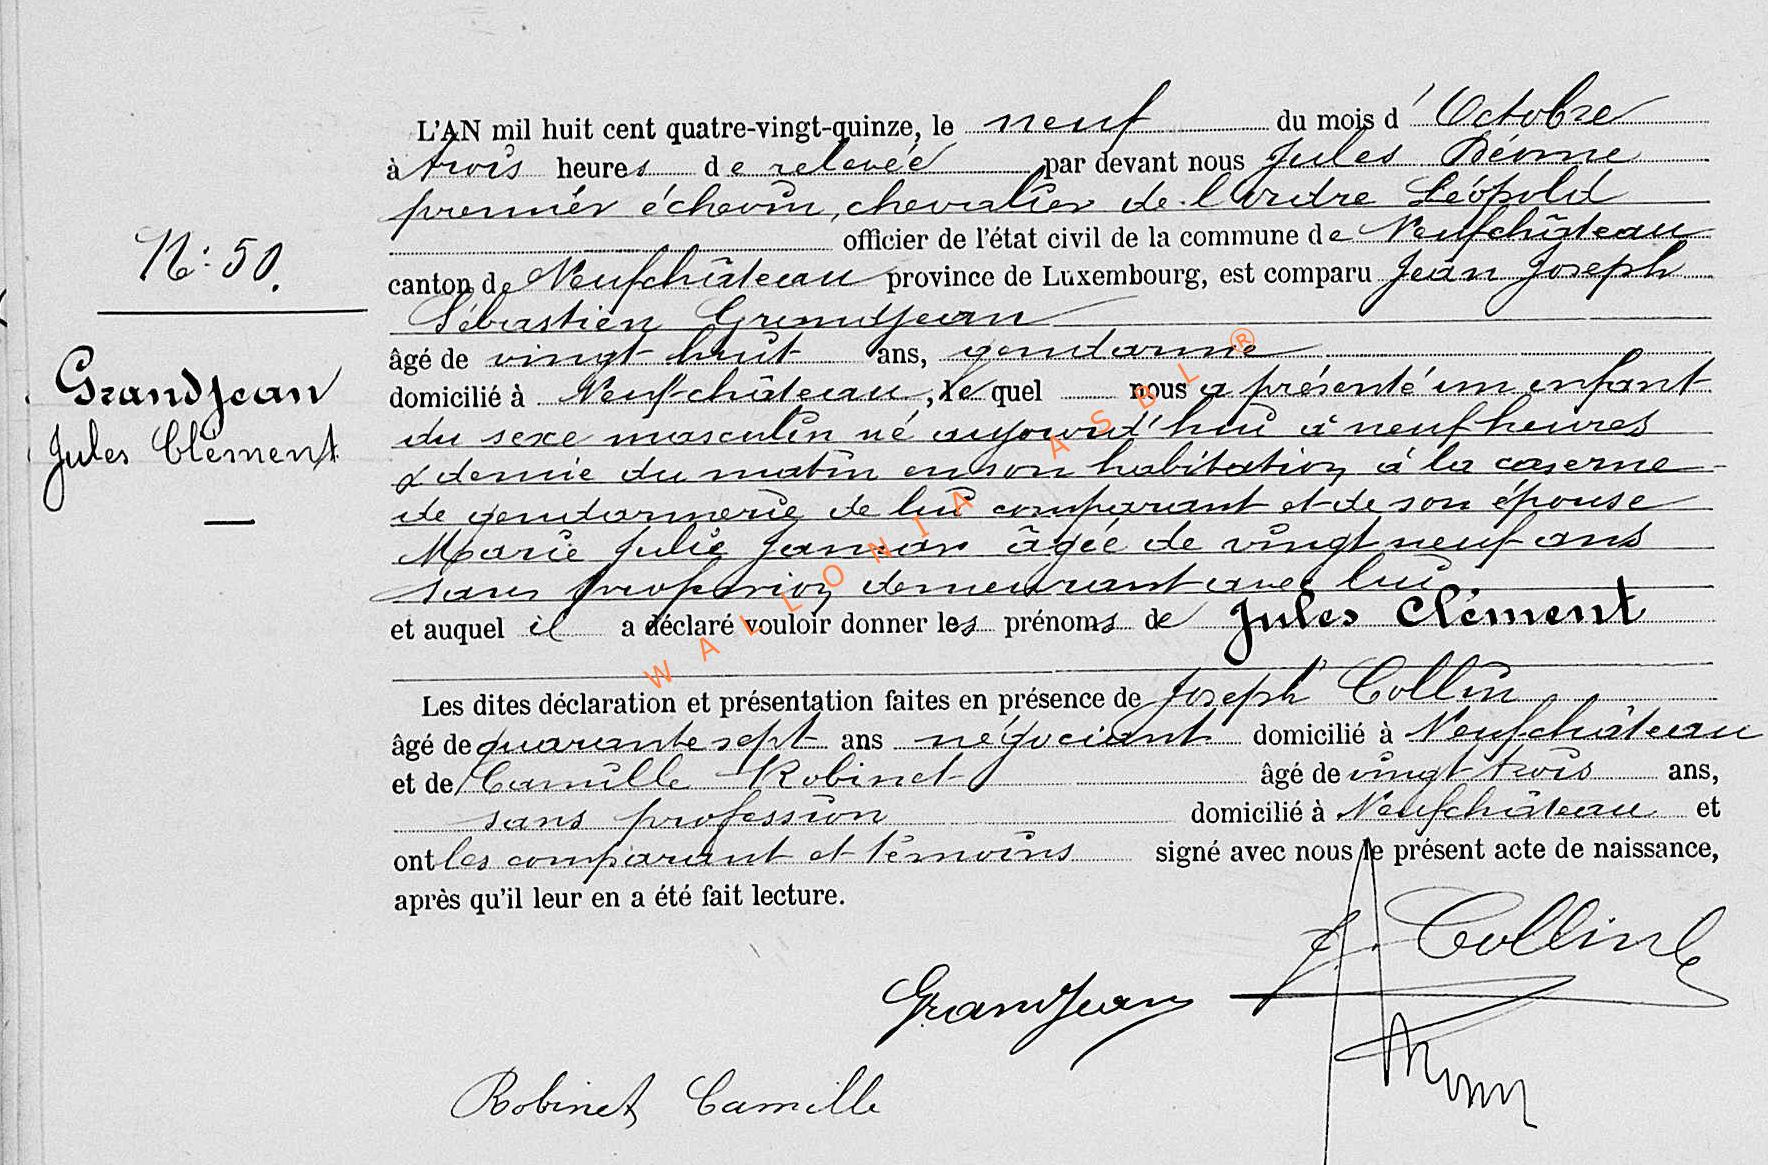 L'AN mil huit cent quatre-vingt-quinze, le neuf du mois d'Octobre
à trois heures de relevée par devant nous Jules
premier échevin, chevalier de l'ordre Léopold
officier de l'état civil de la commune de Neufchâteau
N: 50.
canton de Neufchâteau province de Luxembourg, est comparu Jean Joseph
Sébastien Grandjean
âgé de vingt huit ans, gendarme
Grandjean
domicilié à Neufchâteau, le quel nous a présenté un enfant
Jules Clément
du sexe masculin né aujourd'hui à neuf heures
& demie du matin en son habitation à la caserne
de gendarmerie de lui comparant et de son épouse
Marie Julie âgée de vingt neuf ans
sans profession demeurant avec lui
et auquel il a déclaré vouloir donner les prénoms de Jules Clément
Les dites déclaration et présentation faites en présence de Joseph Collin
âgé de quarante sept ans négociant domicilié à Neufchâteau
et de Camille Robinet âgé de vingt trois ans,
sans profession domicilié à Neufchâteau et
ont les comparant et témoins signé avec nous le présent acte de naissance,
après qu'il leur en a été fait lecture.
J. Collin
Grandjean
Robinet Camille
WALLONIA ASBL ®